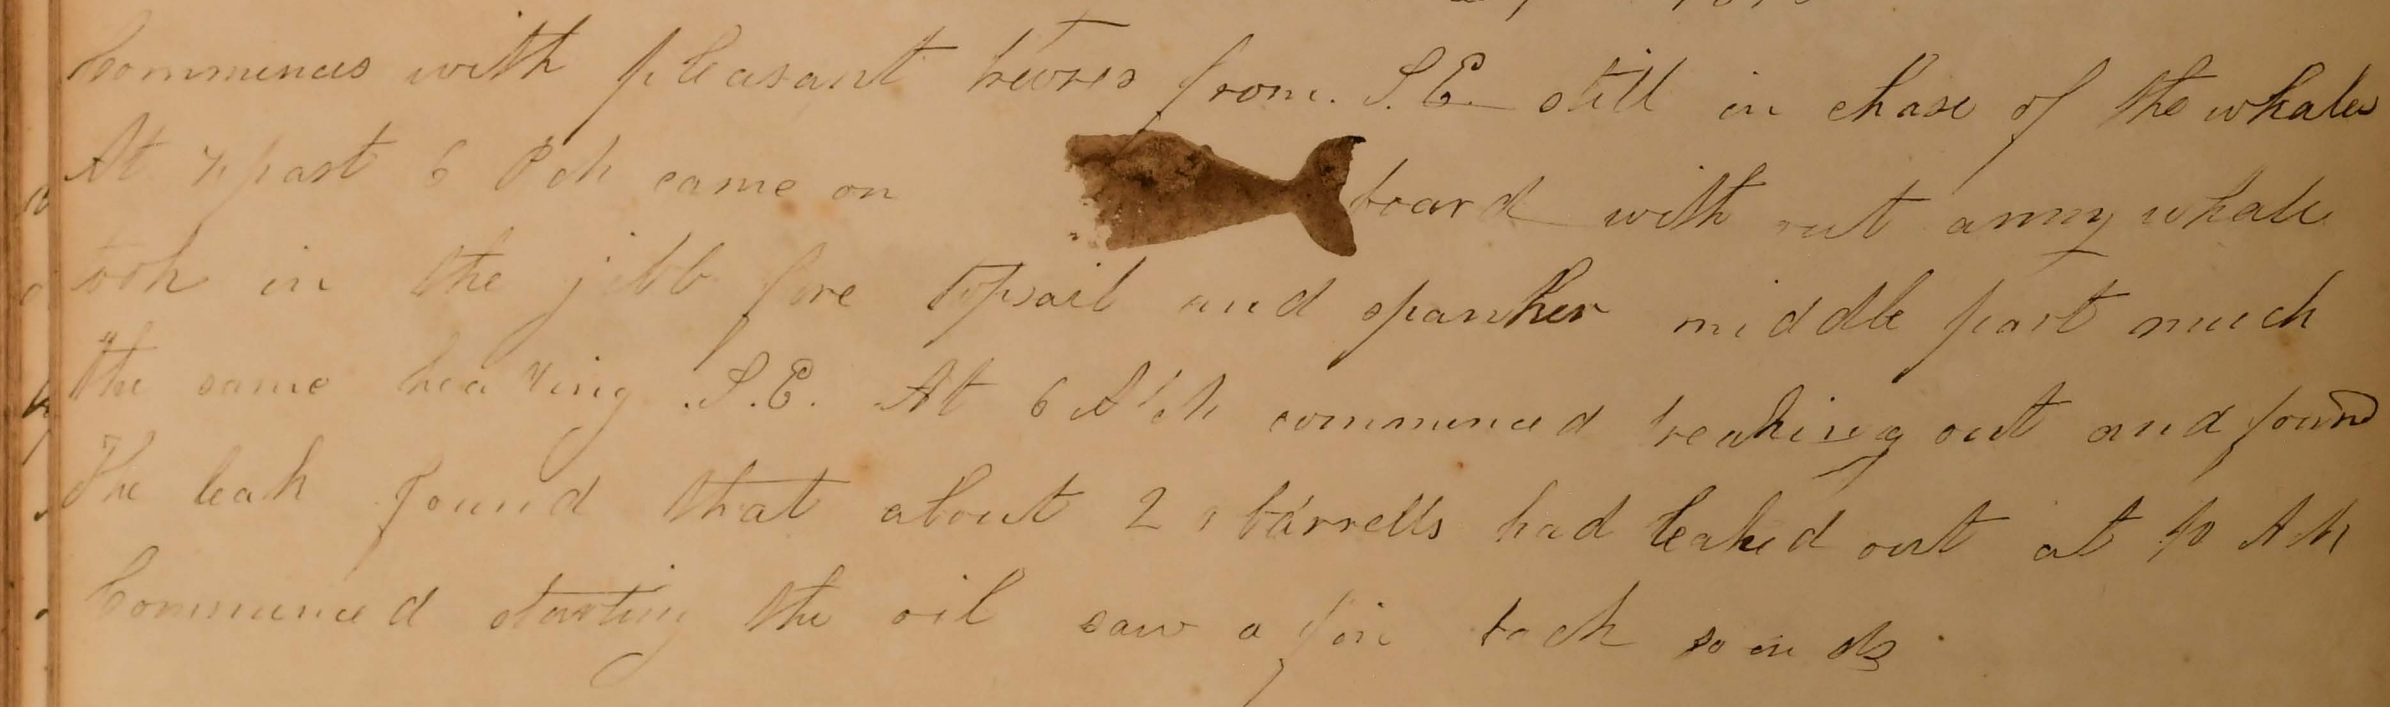 Commences with pleasant breezes from S.E. still in chase of the whales
At ½ past 6 Ock came on board with out anny whale
took in the jibb fore topsail and spanker middle part much
the same heading S.E. At 6 A'ck commenced breaking out and found
The leak found that about 2 barrells had leaked out at 10 A M
Commenced starting the oil saw a fin back so ends